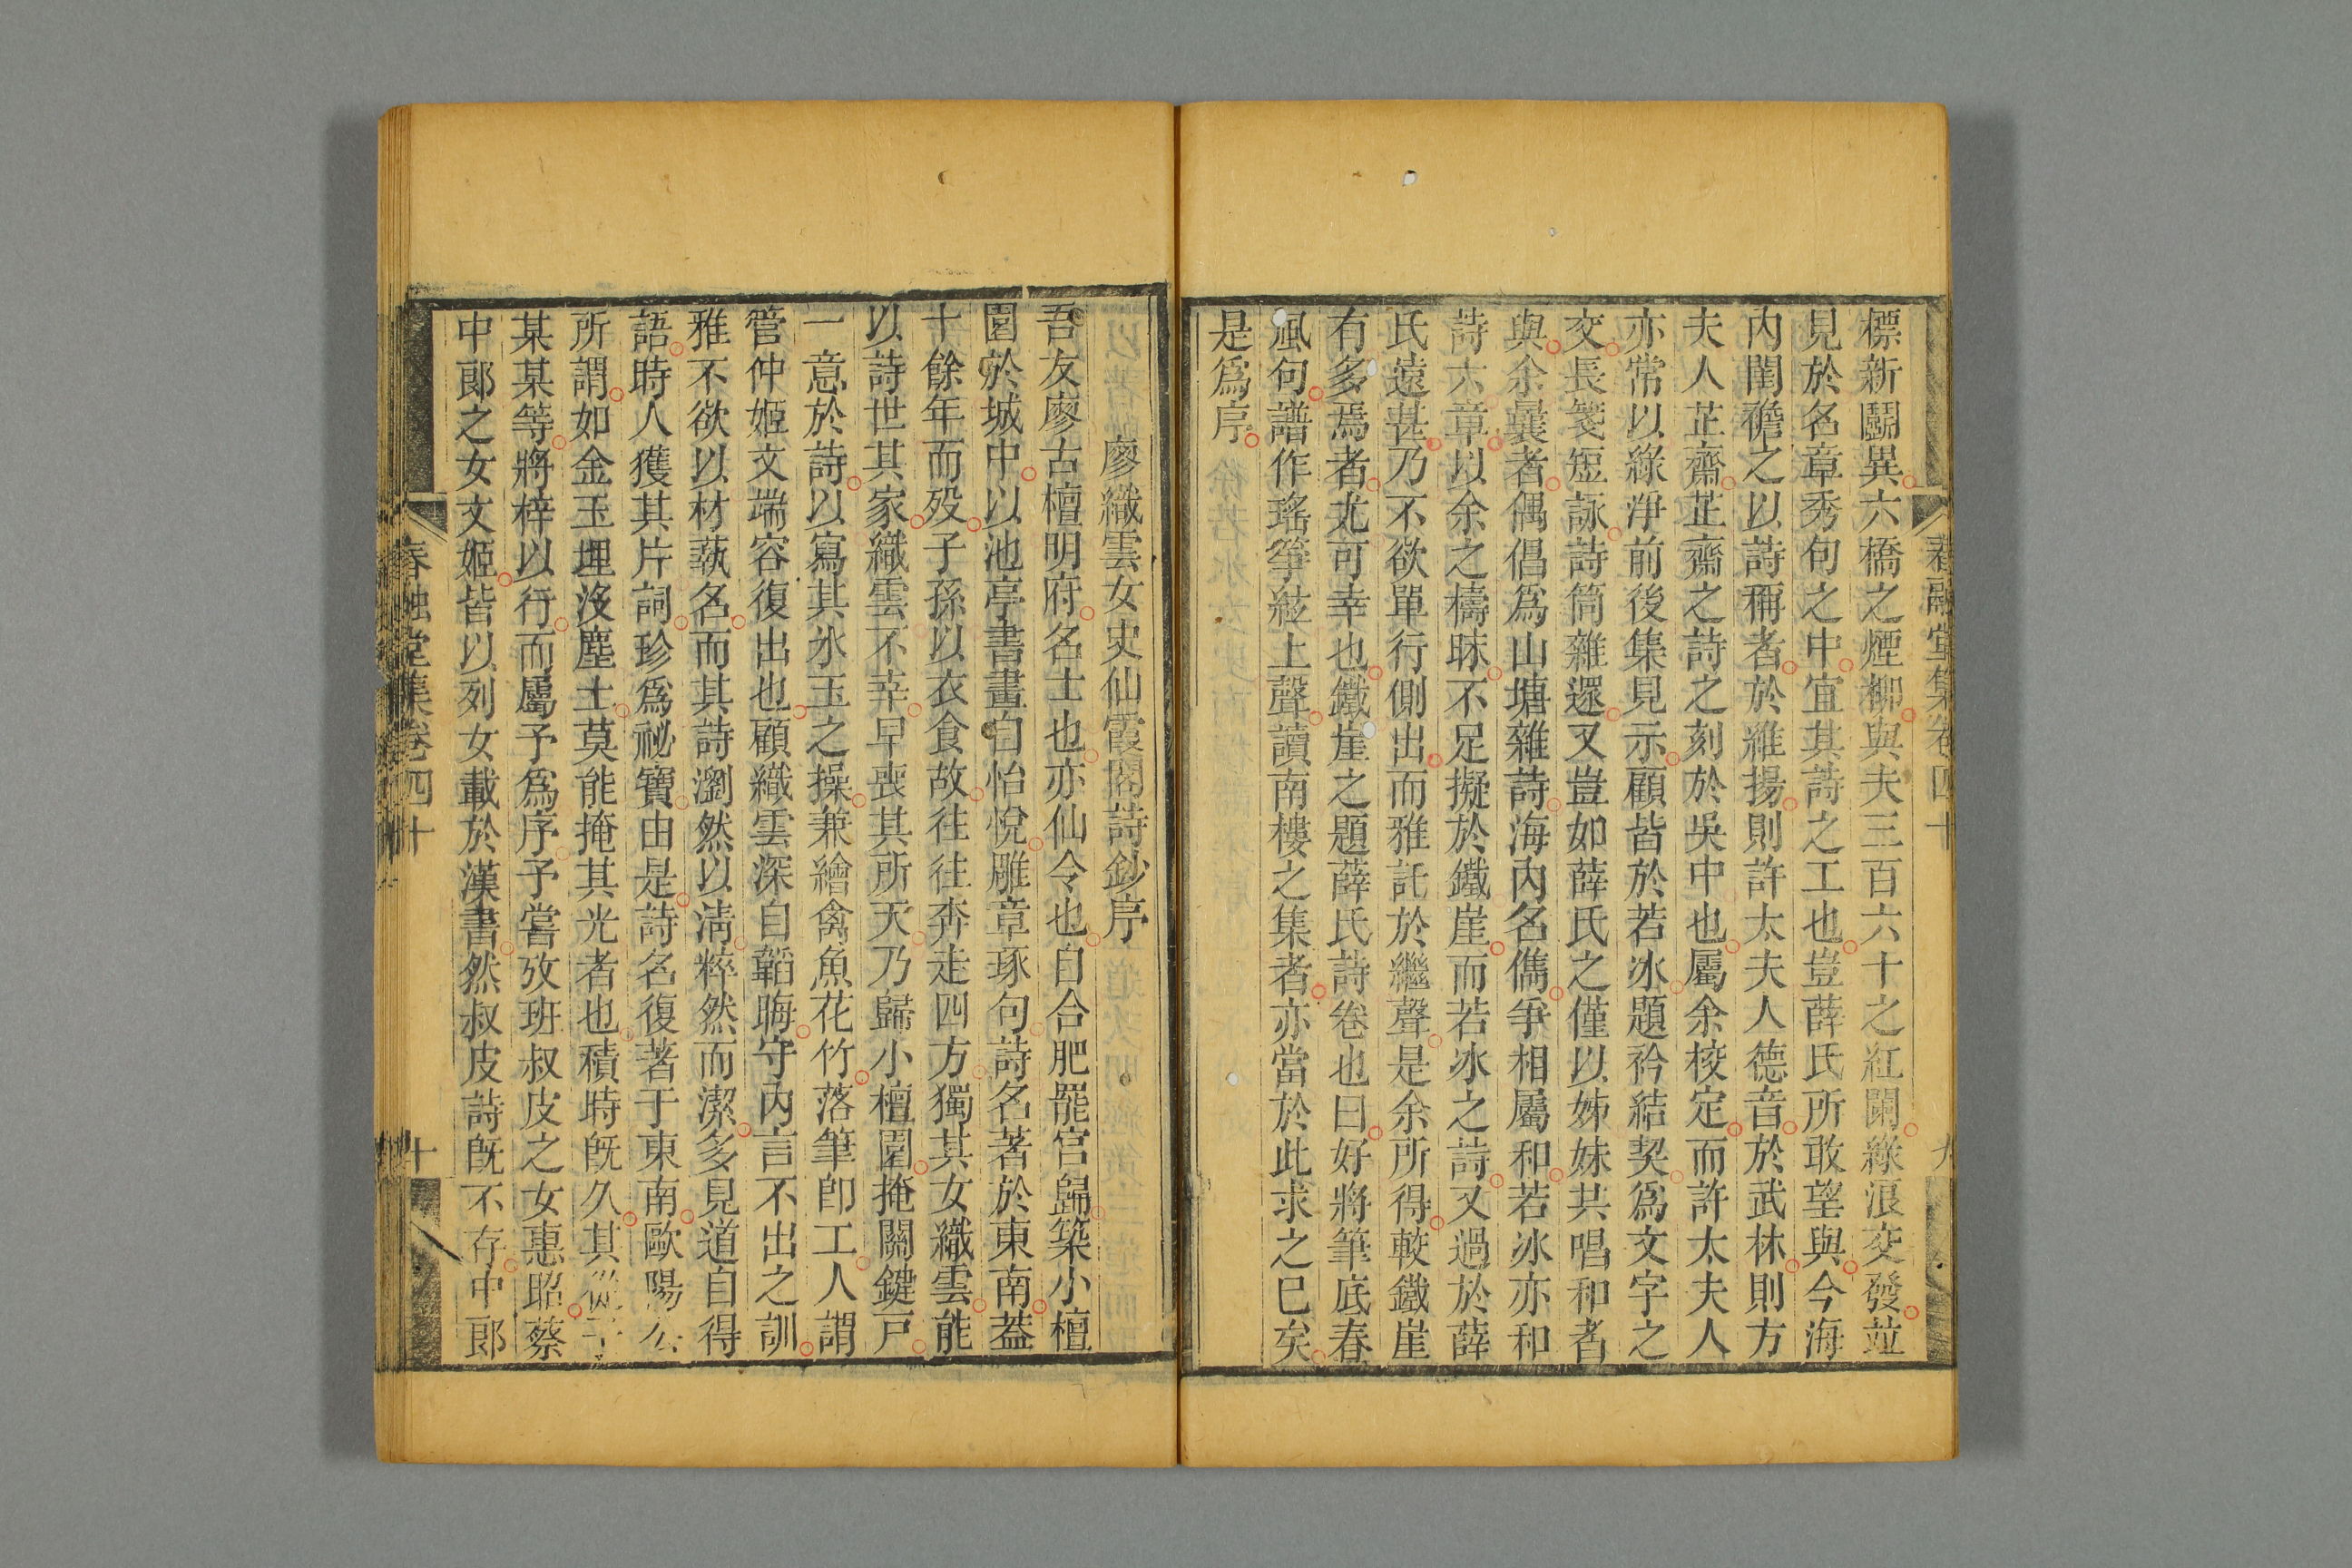 標新鬬異六橋之煙柳與夫三百六十之紅闌綠浪交發竝
見於名章秀句之中宜其詩之工也豈薛氏所敢望與今海
內閨襜之以詩稱者於維揚則許太夫人德音於武林則方
夫人芷齋芷齋之詩之刻於吳中也屬余校定而許太夫人
亦常以綠淨前後集見示顧皆於若冰題衿結契爲文字之
交長箋短詠詩筒雜還又豈如薛氏之僅以姊妹共唱和者
與余曩者偶倡爲山塘雜詩海內名儁爭相屬和若冰亦和
詩六章以余之檮昧不足擬於鐵崖而若冰之詩又過於薛
氏遠甚乃不欲單行側出而雅託於繼聲是余所得較鐵崖
有多焉者尤可幸也鐵崖之題薛氏詩卷也曰好將筆底春
風句譜作瑤箏絃上聲讀南樓之集者亦當於此求之巳矣
是爲序
春融堂集卷四十
廖織雲女史仙霞閣詩鈔序
吾友廖古檀明府名士也亦仙令也自合肥罷官歸築小檀
園於城中以池亭書畫自怡悅雕章琢句詩名著於東南葢
十餘年而歿子孫以衣食故往往奔走四方獨其女織雲能
以詩世其家織雲不幸早喪其所天乃歸小檀園掩關鍵戸
一意於詩以寫其氷玉之操兼繪禽魚花竹落筆卽工人謂
管仲姬文端容復出也顧織雲深自韜晦守內言不出之訓
雅不欲以材藝名而其詩瀏然以淸粹然而潔多見道自得
語時人獲其片詞珍爲祕寶由是詩名復著于東南歐陽公
所謂如金玉埋沒塵土莫能掩其光者也積時旣久其從子
某某等將梓以行而屬予爲序予嘗攷班叔皮之女惠昭蔡
中郎之女文姬皆以列女載於漢書然叔皮詩旣不存中郎
春融堂集卷四十
十